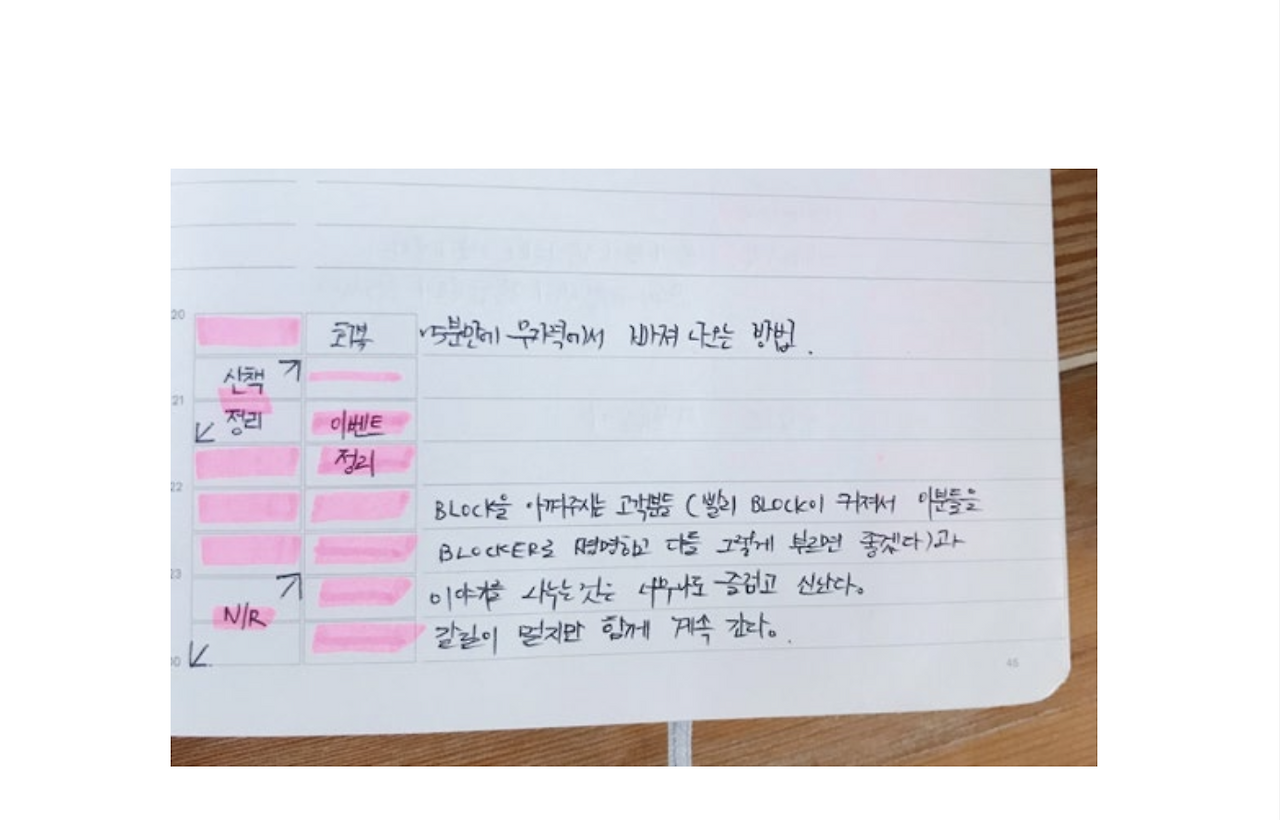 20
회복 15분만에 무기력에서 빠져 나오는 방법.
산책
21
정리 이벤트
정리
22
BLOCK을 아껴주시는 고객분들 (빨리 BLOCK이 커져서 이분들을
BLOCKER로 명명하고 다들 그렇게 부르면 좋겠다)과
23
이야기를 나누는 것은 너무나도 즐겁고 신난다.
N/R
갈길이 멀지만 함께 계속 간다.
00
46